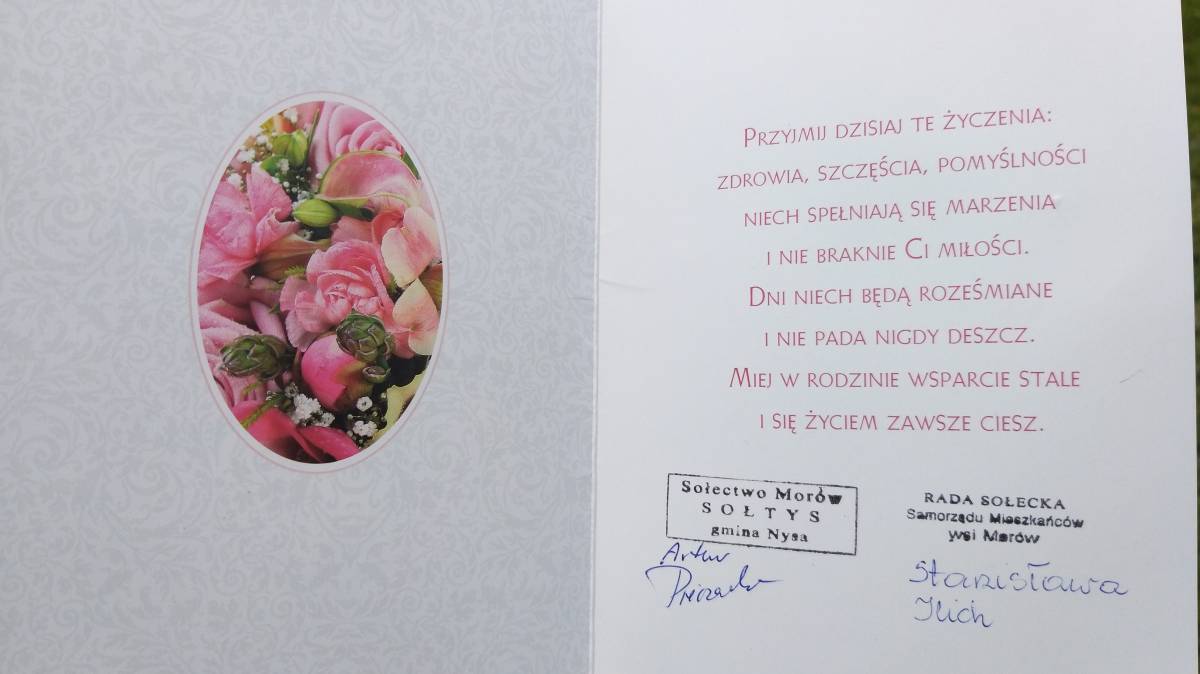 Przyjmij dzisiaj te życzenia:
zdrowia, szczęścia, pomyślności
niech spełniają się marzenia
i nie braknie Ci miłości.
Dni niech będą roześmiane
i nie pada nigdy deszcz.
Miej w rodzinie wsparcie stale
i się życiem zawsze ciesz.
Sołectwo Morów
SOŁTYS
gmina Nysa
Artur
RADA SOŁECKA
Samorządu Mieszkańców
wsi Morów
Stanisława
Ilich